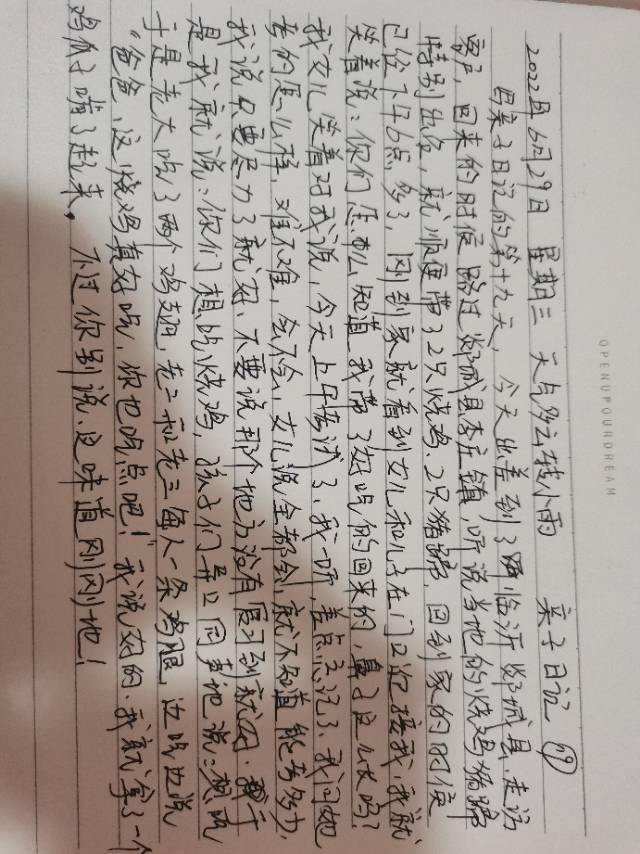 2022年6月29日 星期三 天气多云转小雨 亲子日记⑲
写亲子日记的第十九天，今天出差到了临沂郯城县走访
客户，回来的时候路过郯城县李庄镇，听说当地的烧鸡猪蹄
特别出名，就顺便带了2只烧鸡、2只猪蹄，回到家的时候
已经下午6点多了，刚到家就看到女儿和儿子在门口迎接我，我就
笑着说：你们怎么知道我带了好吃的回来的，鼻子这么长吗？
我女儿笑着对我说，今天上午考试了，我一听，差点忘记了，我问她
考的怎么样，难不难，会不会，女儿说全都会，就不知道能考多少，
我说只要尽力了就好，不要说那个地方没有复习到就行
是我就说：你们想吃烧鸡，孩子们异口同声地说：想吃
于是老大吃了两个鸡翅，老二和老三每人一条鸡腿 边吃边说
“爸爸，这烧鸡真好吃，你也吃点吧！”我说好的，我就拿了一个
鸡爪子啃了起来。不过你别说，这味道刚刚地！
OPENUPOURDREAM